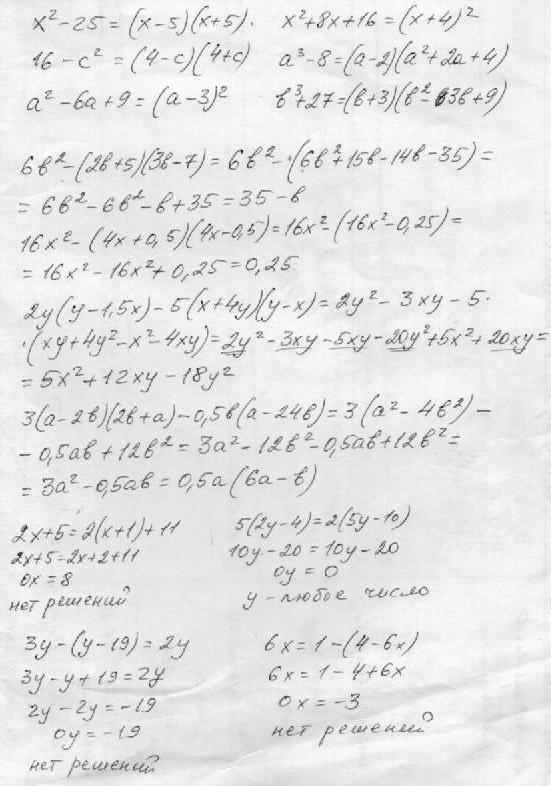 x² - 25 = (x-5)(x+5). x² + 8x + 16 = (x+4)²
16 - c² = (4-c)(4+c) a³ - 8 = (a-2)(a² + 2a + 4)
a² - 6a + 9 = (a-3)² в³ + 27 = (в+3)(в² - 3в + 9)
6в² - (2в+5)(3в-7) = 6в² - (6в² + 15в - 14в - 35) =
= 6в² - 6в² - в + 35 = 35 - в
16x² - (4x+0,5)(4x-0,5) = 16x² - (16x² - 0,25) =
= 16x² - 16x² + 0,25 = 0,25
2y(y-1,5x) - 5(x+4y)(y-x) = 2y² - 3xy - 5·
·(xy + 4y² - x² - 4xy) = 2y² - 3xy - 5xy - 20y² + 5x² + 20xy =
= 5x² + 12xy - 18y²
3(a-2в)(2в+a) - 0,5в(a-24в) = 3(a² - 4в²) -
- 0,5aв + 12в² = 3a² - 12в² - 0,5aв + 12в² =
= 3a² - 0,5aв = 0,5a(6a-в)
2x+5 = 2(x+1)+11
2x+5 = 2x+2+11
0x = 8
нет решений
5(2y-4) = 2(5y-10)
10y-20 = 10y-20
0y = 0
y - любое число
3y - (y-19) = 2y
3y - y + 19 = 2y
2y - 2y = -19
0y = -19
нет решений
6x = 1 - (4-6x)
6x = 1 - 4 + 6x
0x = -3
нет решений